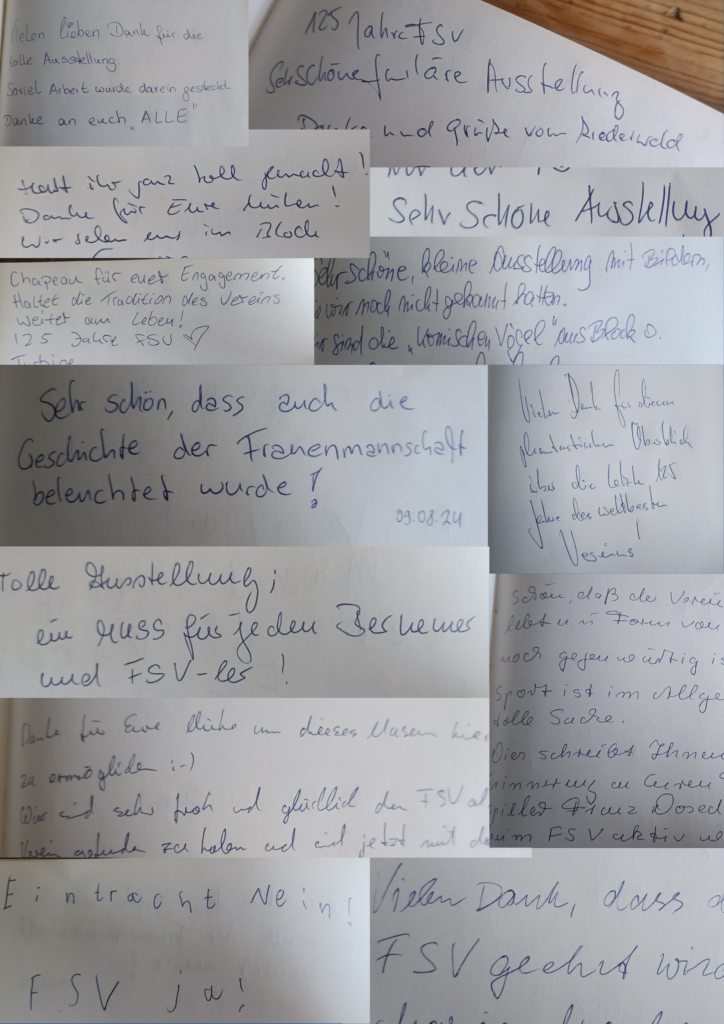 Vielen lieben Dank für die
tolle Ausstellung.
Soviel Arbeit wurde darein gesteckt
Danke an euch „ALLE"
125 Jahre FSV
Sehr schöne Ausstellung
Danke und Grüße vom Riederwald
Habt ihr ganz toll gemacht!
Danke für Eure Mühen!
Wir sehen uns im Block
Sehr Schöne Ausstellung
Chapeau für euer Engagement.
Haltet die Tradition des Vereins
weiter am Leben!
125 Jahre FSV ♡
Turbine
Sehr schöne, kleine Ausstellung mit Bildern,
wir noch nicht gekannt hatten.
sind die „komischen Vögel" aus Block D.
Sehr schön, dass auch die
Geschichte der Frauenmannschaft
beleuchtet wurde!
09.08.24
Vielen Dank für diesen
phantastischen Überblick
über die letzten 125
Jahre des weltbesten
Vereins!
Tolle Ausstellung;
ein MUSS für jeden Bernemer
und FSV-ler!
schön, daß der Verein
lebt u. in Form von
noch gegenwärtig is
Sport ist im Allge
tolle Sache.
Dies schreibt Ihnen
innerung an Euren
pieler Franz
eim FSV aktiv
Danke für Eure Mühe um dieses Museum hier
zu ermöglichen :-)
Wir sind sehr froh und glücklich den FSV al
Verein gefunden zu haben und sind jetzt mit
Eintracht Nein!
FSV ja!
Vielen Dank, dass d
FSV geehrt wird